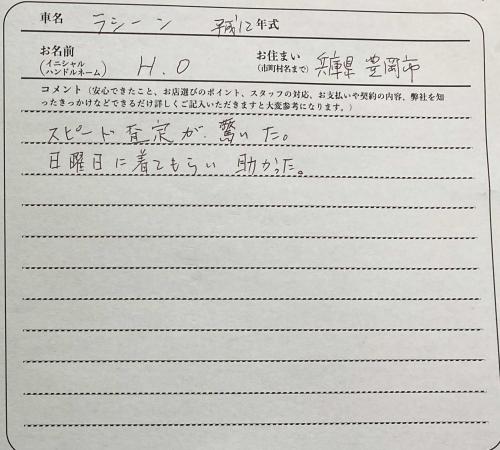 車名 ラシーン 平成12年式
お名前 (イニシャル ハンドルネーム) H.O お住まい (市町村名まで) 兵庫県 豊岡市
コメント（安心できたこと、お店選びのポイント、スタッフの対応、お支払いや契約の内容、弊社を知
ったきっかけなどできるだけ詳しくご記入いただきますと大変参考になります。）
スピード査定が驚いた。
日曜日に着てもらい助かった。